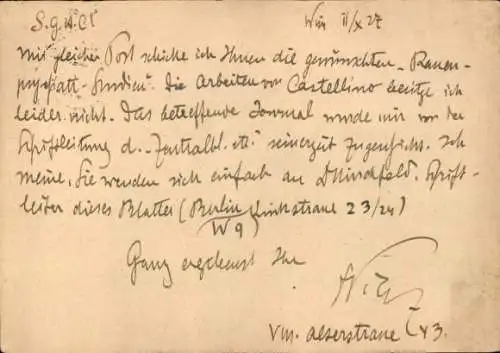 S. g. H. Cl Wien 11/X 27
Mit gleicher Post schicke ich Ihnen die gewünschten „Rauen-
psychiatr. Studien". Die Arbeiten von Castellino besitze ich
leider nicht. Das betreffende Journal wurde mir von der
Schriftleitung d. „Zentralbl. etc." seinerzeit zugeschickt. Ich
meine, Sie wenden sich einfach an D Hirschfeld, Schrift-
leiter dieses Blattes (Berlin Linkstrasse 23/24)
W 9
Ganz ergebenst Ihr
VIII. Alserstrasse 43.